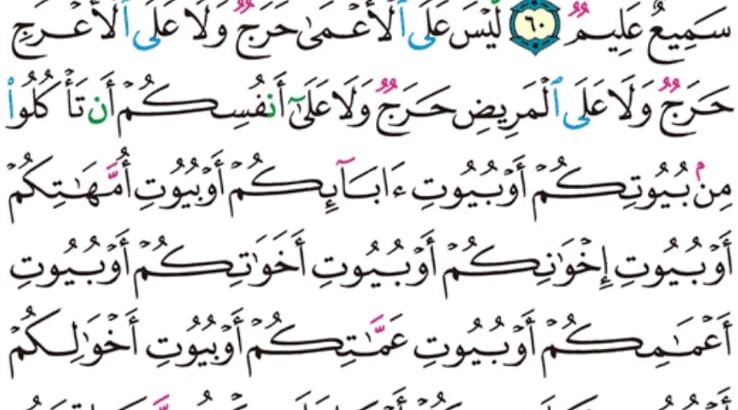 سَمِيعٌ عَلِيمٌ ٦٠ لَّيْسَ عَلَى ٱلْأَعْمَىٰ حَرَجٌ وَلَا عَلَى ٱلْأَعْرَجِ
حَرَجٌ وَلَا عَلَى ٱلْمَرِيضِ حَرَجٌ وَلَا عَلَىٰٓ أَنفُسِكُمْ أَن تَأْكُلُوا۟
مِنۢ بُيُوتِكُمْ أَوْ بُيُوتِ ءَابَآئِكُمْ أَوْ بُيُوتِ أُمَّهَٰتِكُمْ
أَوْ بُيُوتِ إِخْوَٰنِكُمْ أَوْ بُيُوتِ أَخَوَٰتِكُمْ أَوْ بُيُوتِ
أَعْمَٰمِكُمْ أَوْ بُيُوتِ عَمَّٰتِكُمْ أَوْ بُيُوتِ أَخْوَٰلِكُمْ